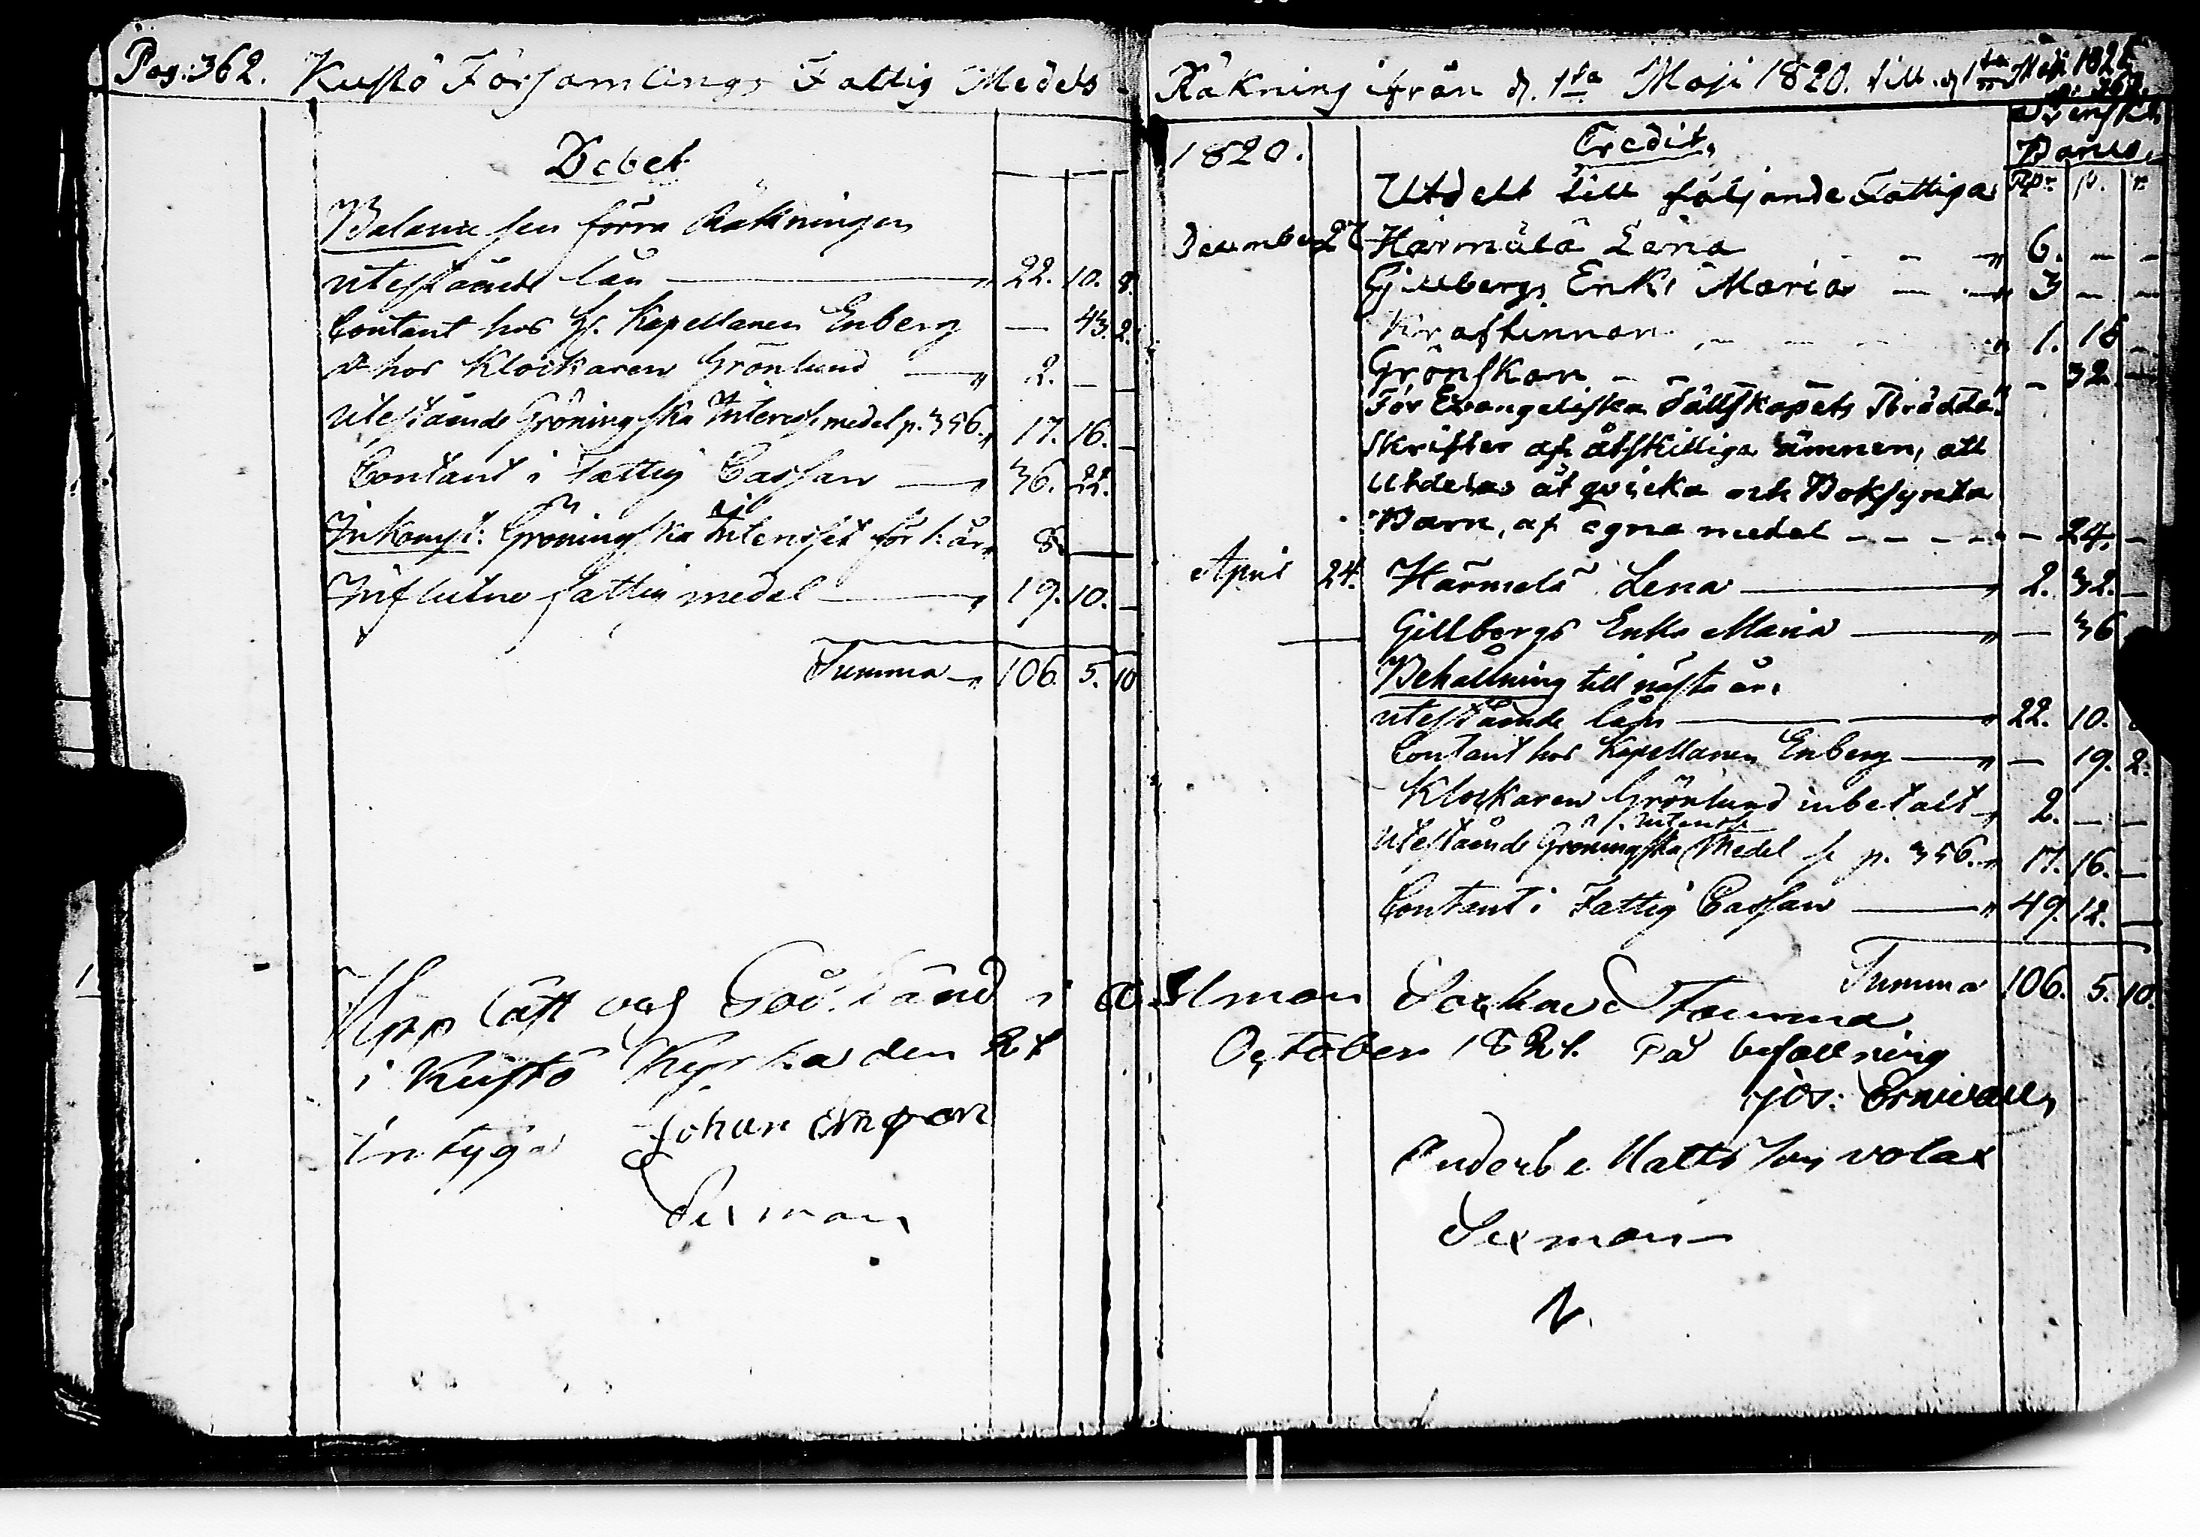 Pag: 362. Kustö Församlings Fattig Medels
Debet
Balance sen förra Räkningen
utestående lån — " 22. 10. 8.
Contant hos H. Kapellanen Enberg — 43. 2.
d:o hos Klockaren Grönlund — " 2. — —
Utestående Gröningska Interesse medel p. 356. " 17. 16. —
Contant i Fattig Cassan — " 36. 22.
Inkomst: Gröningska Interesset för 1. år " 8. —
Influtne fattig medel — " 19. 10. —
Summa — " 106. 5. 10
Räkning ifrån d. 1sta Maji 1820. till d. 1sta Maji 1821.
p. 362.
1820.
Credit,
Svenskt
Banco,
Utdelt till följande Fattiga Rdr. s. r.
December 27 Härmälä Lena " 6. — —
Gillbergs Enka Maria — " 3 — —
Kraftinnan " 1. 18 —
Grönskan — — 32. —
För Evangeliska Sällskapets Trädda
Skrifter af åtskilliga ämnen, att
Utdelas åt qvicka och Boksynta
Barn, af egna medel — — — — — 24. —
April 24. Härmälä Lena — " 2. 32. —
Gillbergs Enka Maria — " — 36
Behållning till nästa år.
utestående lån — " 22. 10.
Contant hos Kapellanen Enberg — " — 19. 2.
Klockaren Grönlund inbetalt " 2. — —
Interesse
Utestående Gröningska Medel se p. 356. " 17. 16. —
Contant i Fattig Cassan — " 49. 12. —
Summa 106. 5. 10.
Upp läst och God känd i Allman Sockne Stämma
i Kustö Kyrka den 21 October 1821. På befallning
Jos:
intygar Johan
Sexman
Matts son
Sexman